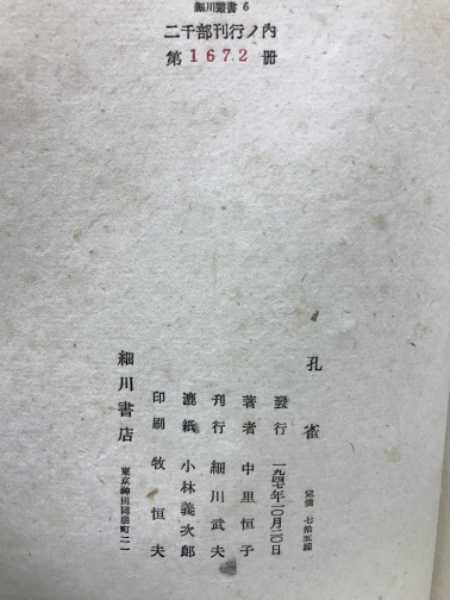 細川叢書 6
二千部刊行ノ內
第1672冊
孔雀
定價 七拾五圓
發行 一九四七年一〇月二〇日
著者 中里恒子
刊行 細川武夫
漉紙 小林義次郎
印刷 牧恒夫
細川書店
東京神田同朋町二一